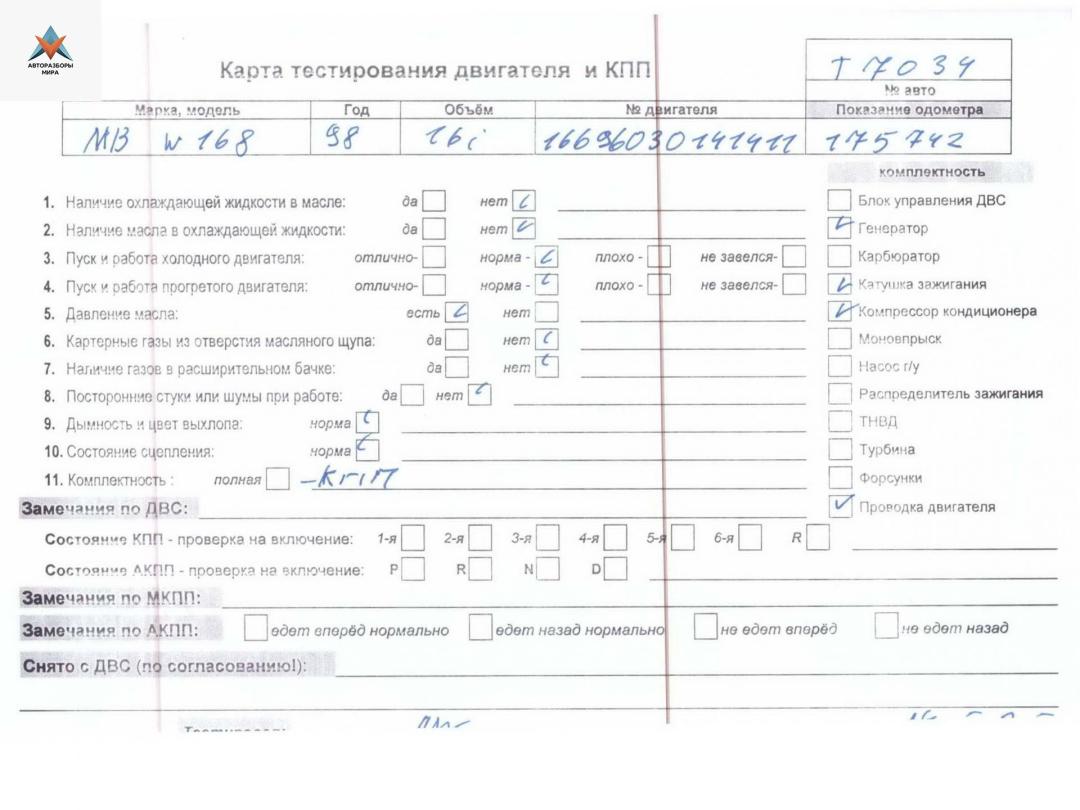 АВТОРАЗБОРЫ
МИРА
Карта тестирования двигателя и КПП
T7034
№ авто
Марка, модель Год Объём № двигателя Показание одометра
MB W168 98 16i 16696030141411 175 742
комплектность
1. Наличие охлаждающей жидкости в масле: да нет Блок управления ДВС
2. Наличие масла в охлаждающей жидкости: да нет Генератор
3. Пуск и работа холодного двигателя: отлично- норма - плохо - не завелся- Карбюратор
4. Пуск и работа прогретого двигателя: отлично- норма - плохо - не завелся- Катушка зажигания
5. Давление масла: есть нет Компрессор кондиционера
6. Картерные газы из отверстия масляного щупа: да нет Моновпрыск
7. Наличие газов в расширительном бачке: да нет Насос г/у
8. Посторонние стуки или шумы при работе: да нет Распределитель зажигания
9. Дымность и цвет выхлопа: норма ТНВД
10. Состояние сцепления: норма Турбина
11. Комплектность : полная Форсунки
Замечания по ДВС: Проводка двигателя
Состояние КПП - проверка на включение: 1-я 2-я 3-я 4-я 5-я 6-я R
Состояние АКПП - проверка на включение: P R N D
Замечания по МКПП:
Замечания по АКПП: едет вперёд нормально едет назад нормально не едет вперёд не едет назад
Снято с ДВС (по согласованию!):